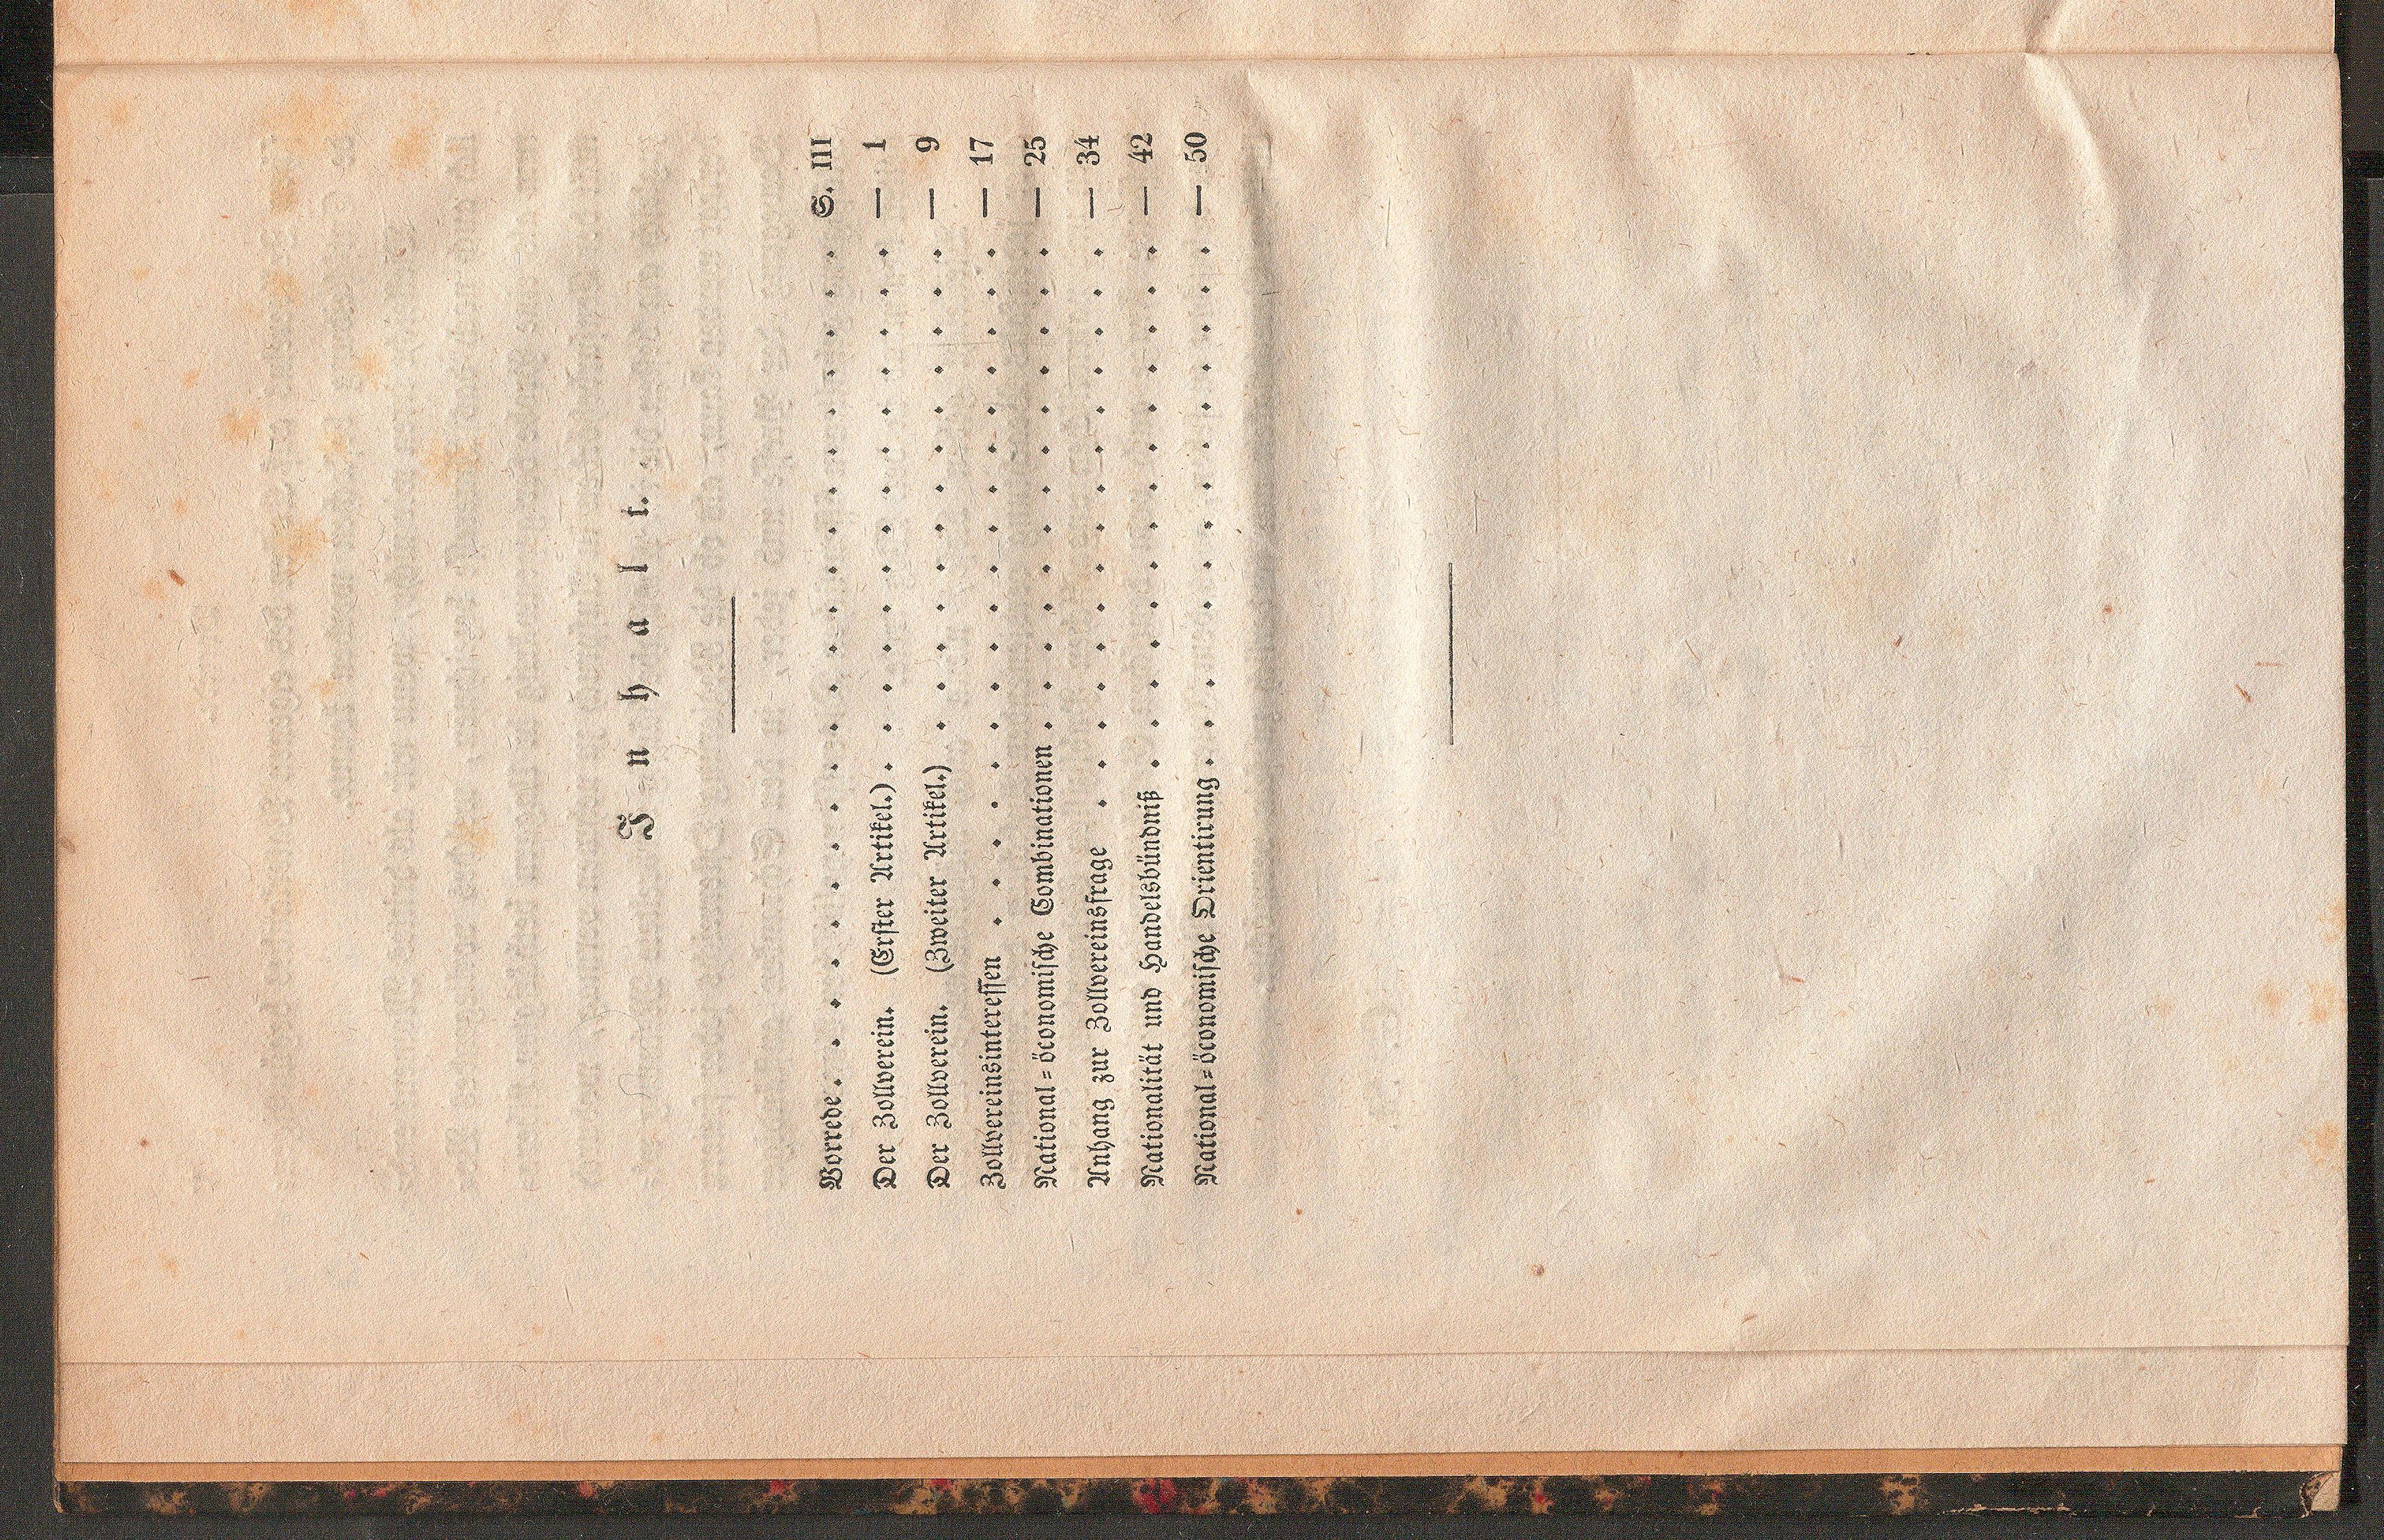 Inhalt.
Vorrede . . . . . . . . . . . . . . . . . . . . . . S. III
Der Zollverein. (Erster Artikel.) . . . . . . . . . . . . . . — 1
Der Zollverein. (Zweiter Artikel.) . . . . . . . . . . . . . — 9
Zollvereinsinteressen . . . . . . . . . . . . . . . . . . — 17
National-öconomische Combinationen . . . . . . . . . . . . . — 25
Anhang zur Zollvereinsfrage . . . . . . . . . . . . . . . — 34
Nationalität und Handelsbündniß . . . . . . . . . . . . . . — 42
National-öconomische Orientirung . . . . . . . . . . . . . . — 50